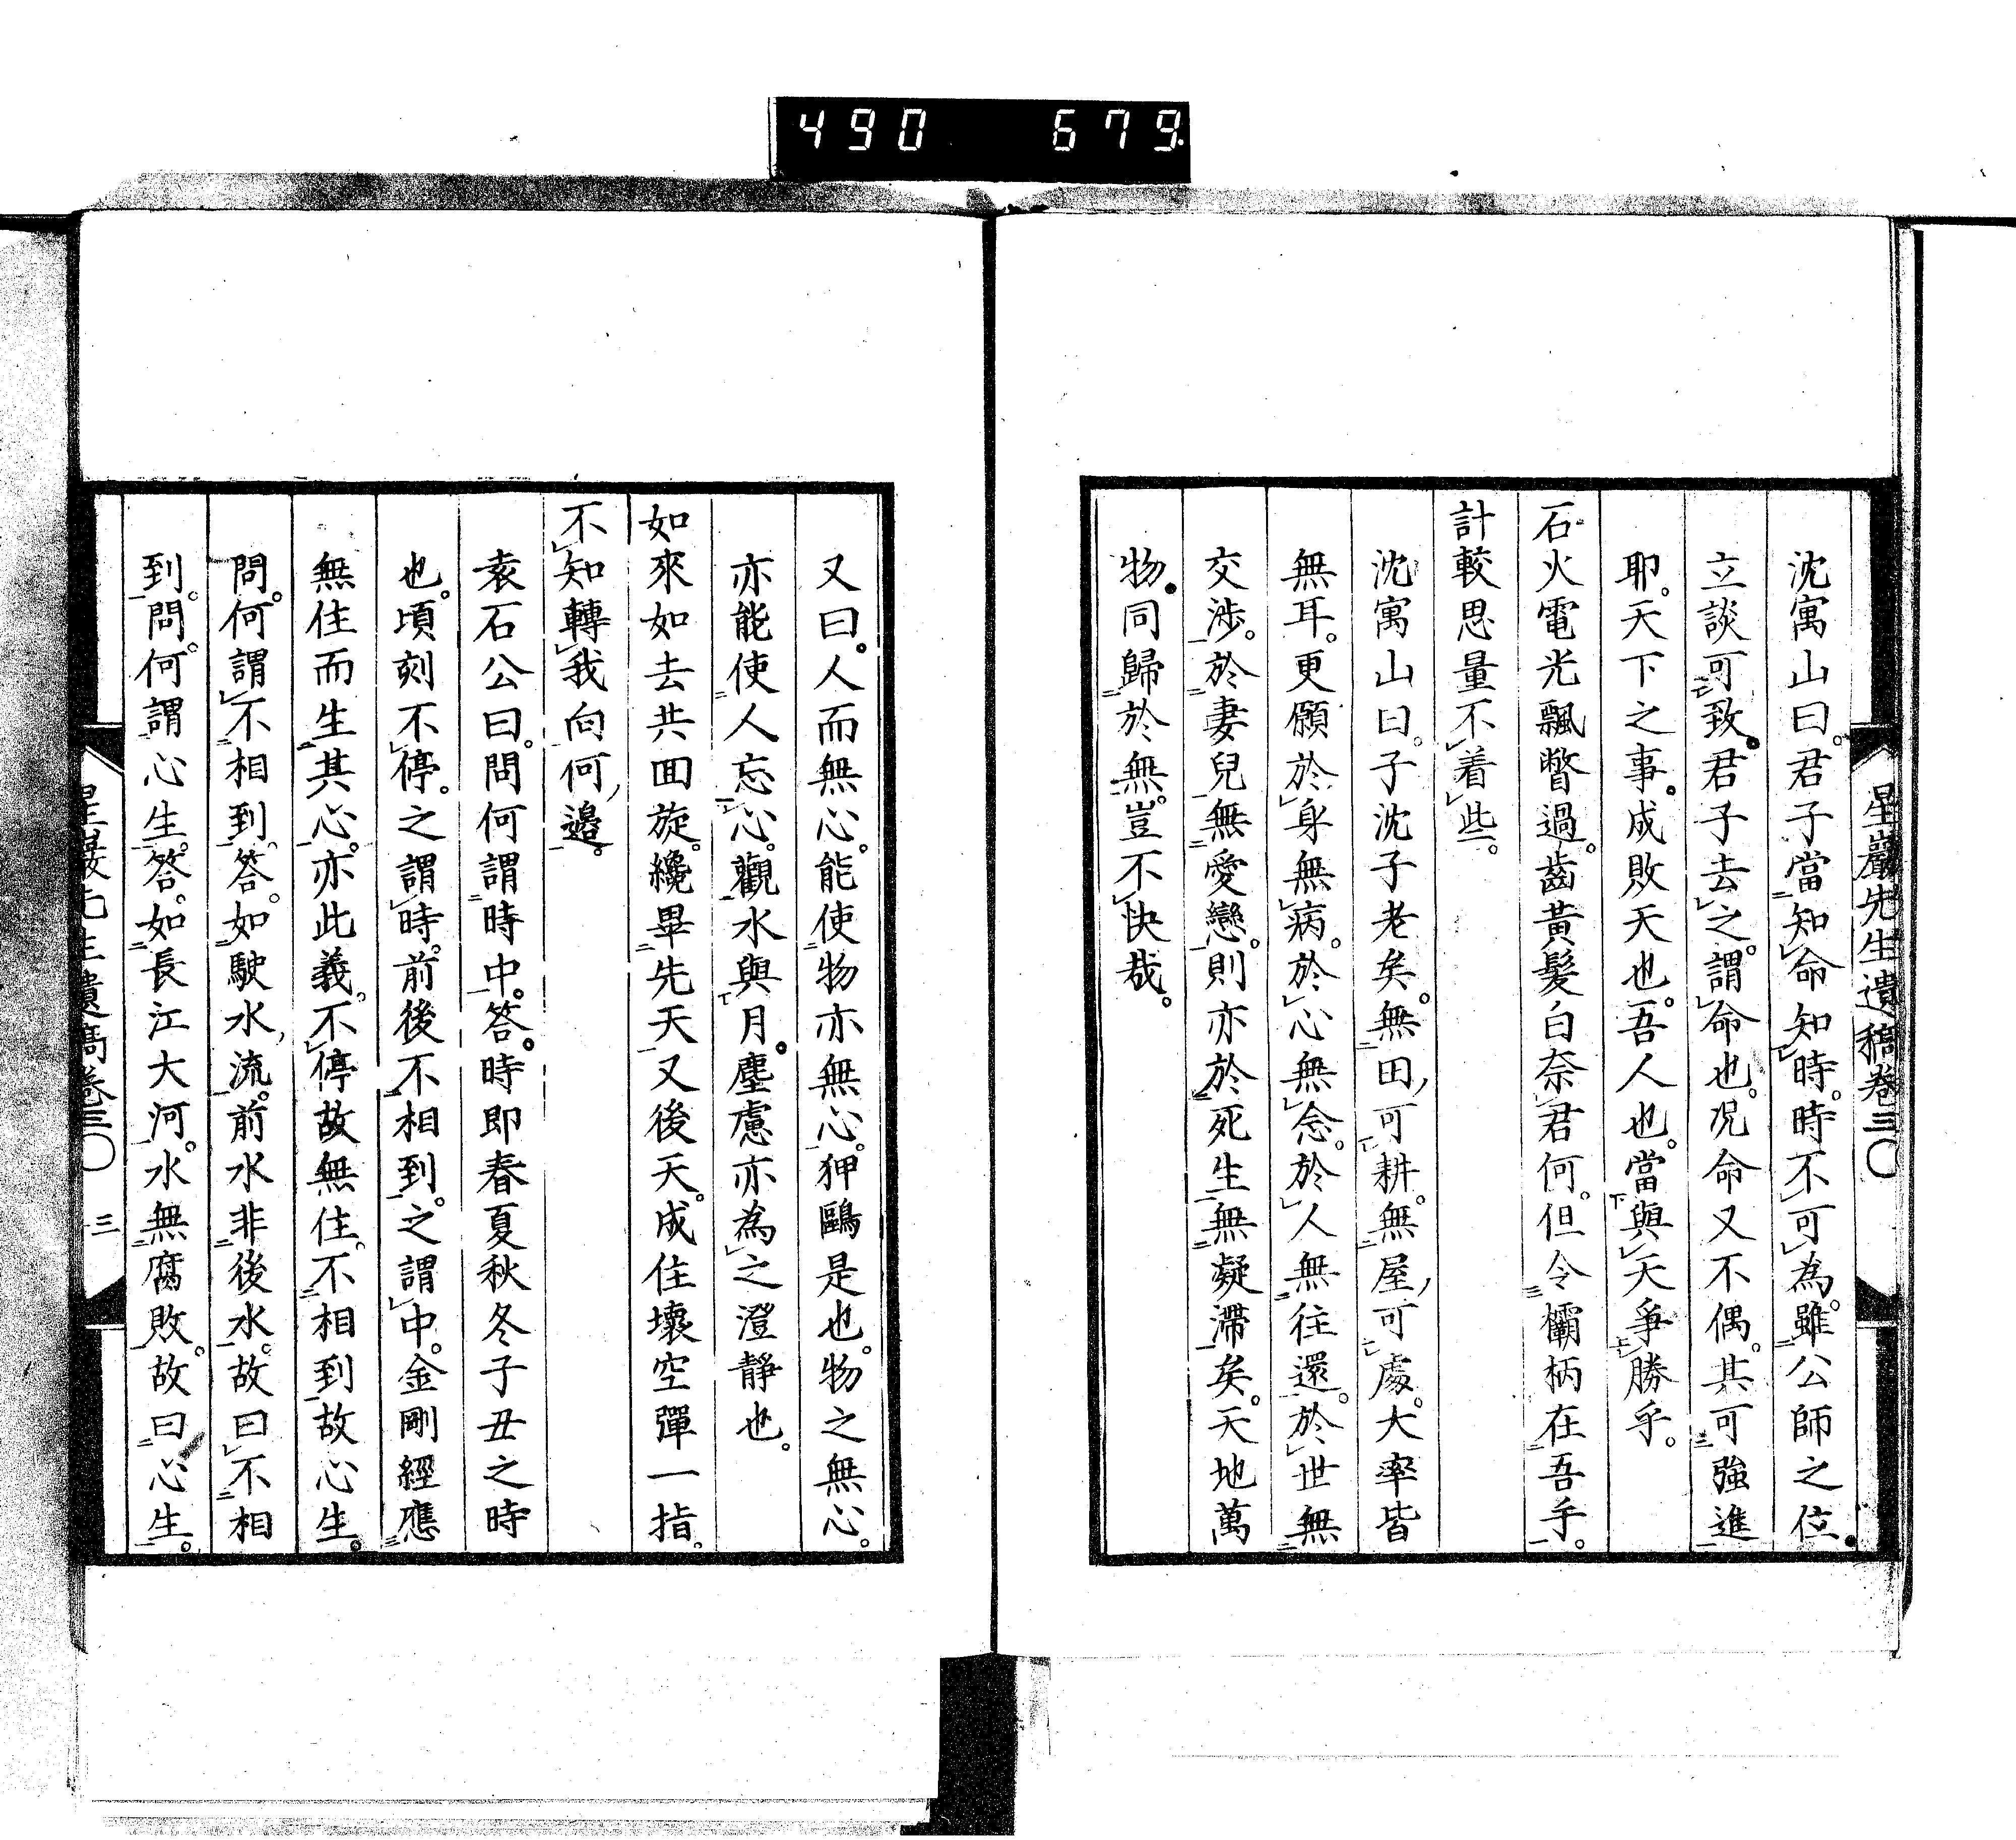 490 679
星巖先生遺稿卷三〇
沈寓山曰。君子當知命知時。時不可為。雖公師之位。
立談可致。君子去之。謂命也。況命又不偶。其可強進
耶。天下之事。成敗天也。吾人也。當與天爭勝乎。
石火電光飄瞥過。齒黃髮白奈君何。但令欛柄在吾手。
計較思量不着些。
沈寓山曰。子沈子老矣。無田可耕。無屋可處。大率皆
無耳。更願於身無病。於心無念。於人無往還。於世無
交涉。於妻兒無愛戀。則亦於死生無凝滯矣。天地萬
物。同歸於無。豈不快哉。
又曰。人而無心。能使物亦無心。狎鷗是也。物之無心。
亦能使人忘心。觀水與月。塵慮亦為之澄靜也。
如來如去共回旋。纔畢先天又後天。成住壞空彈一指。
不知轉我向何邊。
袁石公曰。問何謂時中。答。時即春夏秋冬子丑之時
也。頃刻不停。之謂時。前後不相到。之謂中。金剛經應
無住而生其心。亦此義。不停故無住。不相到故心生。
問。何謂不相到。答。如駛水流。前水非後水。故曰不相
到。問。何謂心生。答。如長江大河。水無腐敗。故曰心生。
星巖先生遺稿卷三〇 三